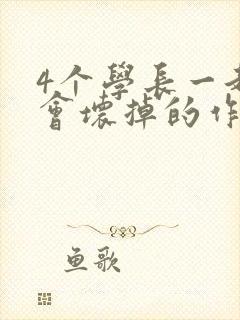 4个學長一
會壞掉的作
鱼歌